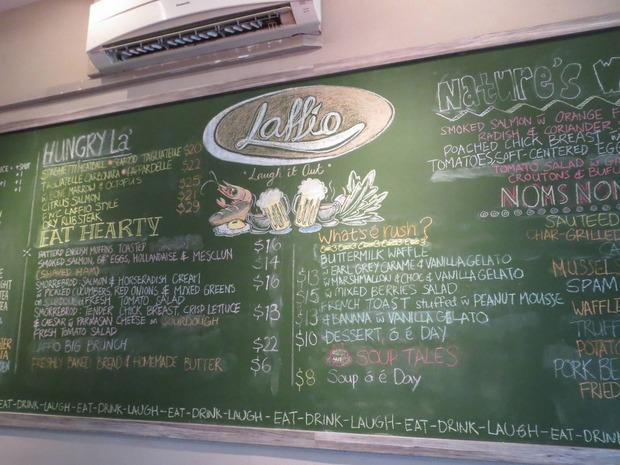 Laffio
Laugh it Out
HUNGRY La'
SPAGHETTI MEATBALL SEAFOOD TAGLIATELLE $20
TAGLIATELLE CARBONNA PAPARDELLE $22
MARROW OCTOPUS
CITRUS SALMON $25
LAFFIO STYLE
DRY CUBE STEAK $29
EAT HEARTY
ENGLISH MUFFINS TOASTED $16
SMOKED SALMON, 64° EGGS, HOLLANDAISE & MESCLUN
SHAVED HAM $14
SMORREBROD: SALMON & HORSERADISH CREAM $16
w PICKLED CUCUMBERS, RED ONIONS & MIXED GREENS
FRESH TOMATO SALAD
SMORREBROD: TENDER CHICK BREAST, CRISP LETTUCE $13
& CAESAR w PARMASAN CHEESE on SOURDOUGH
FRESH TOMATO SALAD
LAFFIO BIG BRUNCH $22
FRESHLY BAKED BREAD & HOMEMADE BUTTER $6
What's é rush?
BUTTERMILK WAFFLE
$13 w EARL GREY CARAMEL & VANILLA GELATO
w MARSHMALLOW & CHOC & VANILLA GELATO
$15 w MIXED BERRIES SALAD
FRENCH TOAST stuffed w PEANUT MOUSSE
$13 & BANANA w VANILLA GELATO
$10 DESSERT ó é DAY
SOUP TALES
$8 Soup ó é Day
NATURE'S
SMOKED SALMON w ORANGE
RADISH & CORIANDER
POACHED CHICK BREAST w
TOMATOES SOFT-CENTERED EGG
TOMATO SALAD w
CROUTONS &
NOMS NOM
SAUTEED
CHAR-GRILLED
MUSSEL
SPAM
WAFFLE
TRUFF
POTATO
PORK BE
FRIED
EAT-DRINK-LAUGH-EAT-DRINK-LAUGH-EAT-DRINK-LAUGH-EAT-DRINK-LAUGH-EAT-DRINK-LAUGH-EAT-DRINK-LAUGH-EAT-DRINK-LAUGH